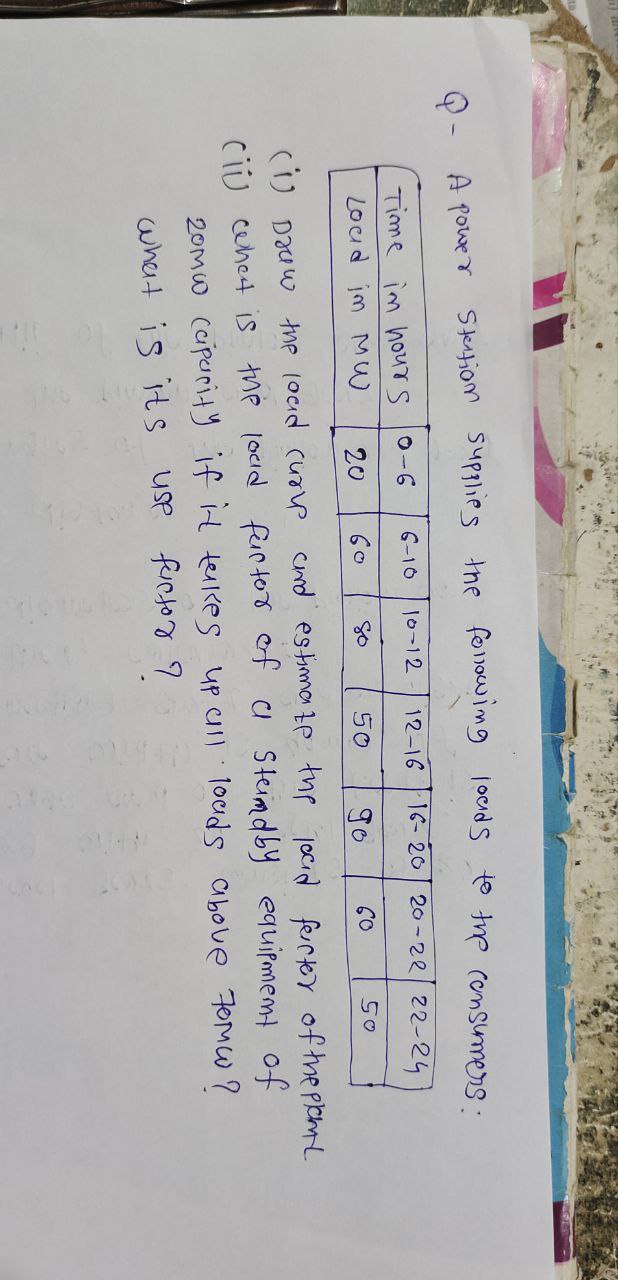 Q- A power Station supplies the following loads to the consumers:
Time in hours 0-6 6-10 10-12 12-16 16-20 20-22 22-24
Load in MW 20 60 80 50 90 60 50
(i) Draw the load curve and estimate the load factor of the plant
(ii) What is the load factor of a Standby equipment of
20MW capacity if it takes up all loads above 70MW?
What is its use factor?